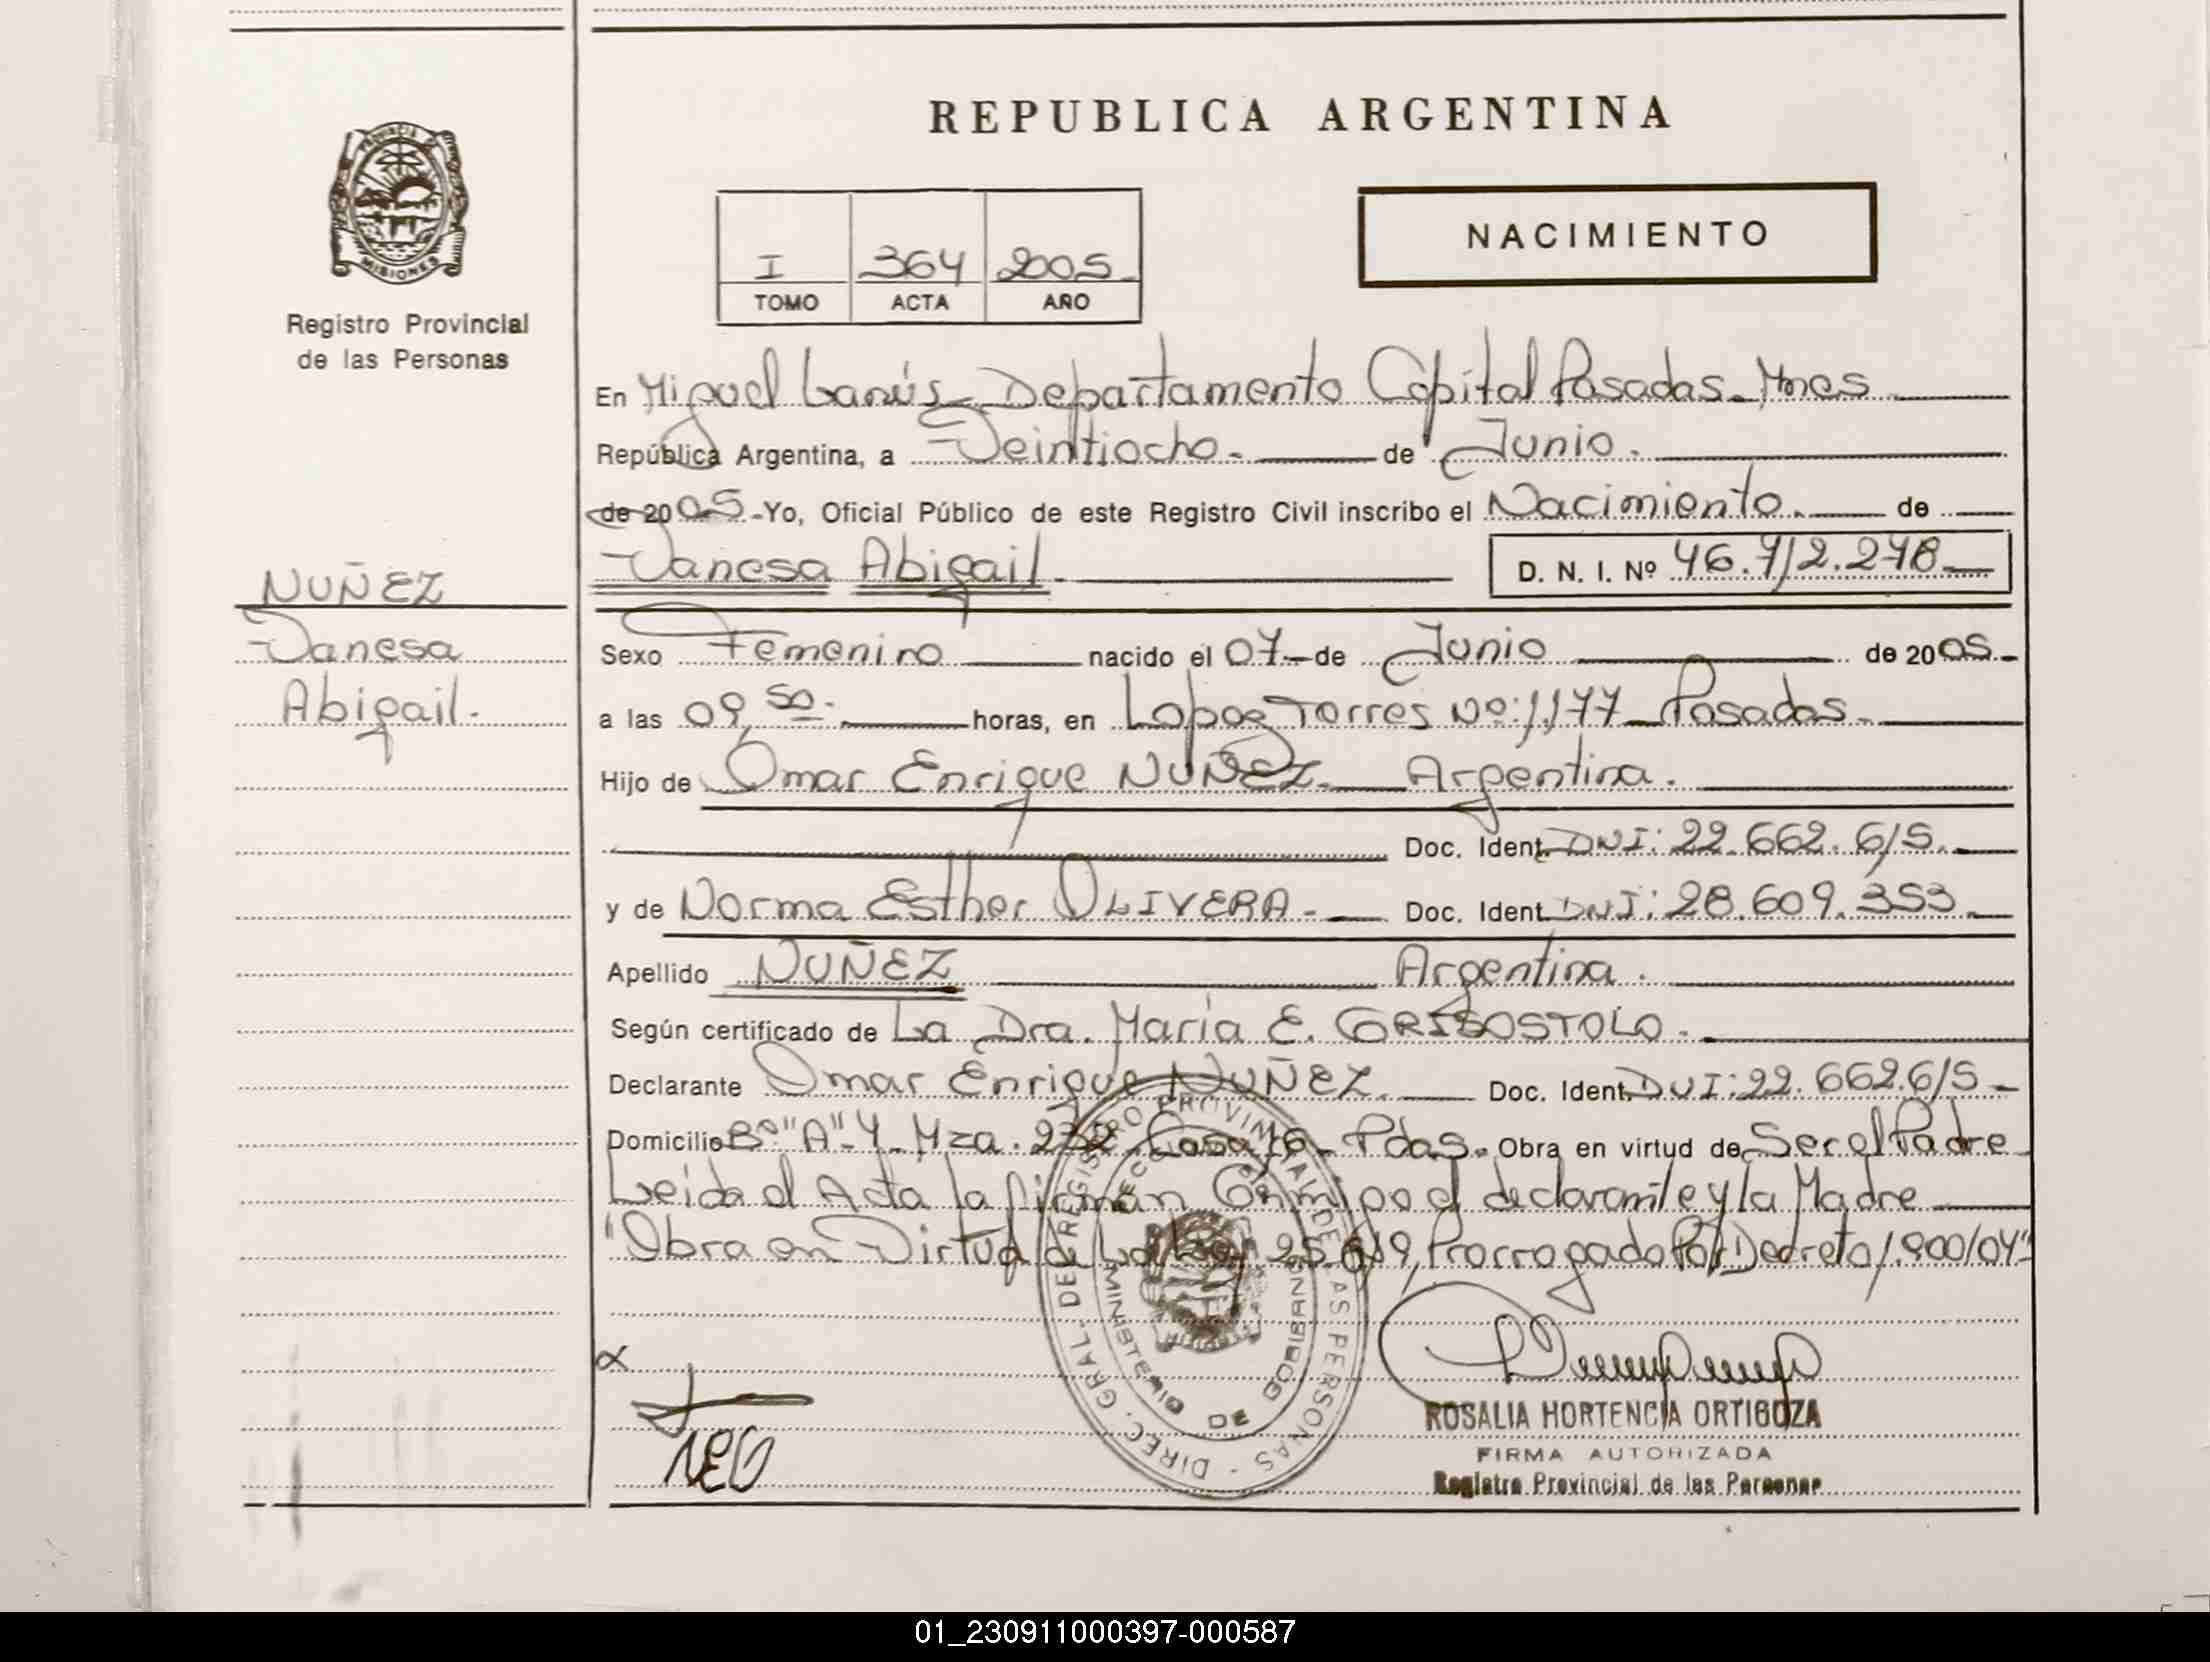 REPUBLICA ARGENTINA
PROVINCIA DE MISIONES
Registro Provincial
de las Personas
NACIMIENTO
I 364 2005
TOMO ACTA AÑO
En Miguel Lanús Departamento Capital Posadas Mnes
República Argentina, a Veintiocho de Junio
de 2005 Yo, Oficial Público de este Registro Civil inscribo el Nacimiento de
Vanesa Abigail D. N. I. Nº 46.712.278
NUÑEZ
Vanesa
Abigail
Sexo Femenino nacido el 07 de Junio de 2005
a las 09,50 horas, en Lopez Torres Nº:1177 Posadas
Hijo de Omar Enrique NUÑEZ Argentina
Doc. Ident. DNI: 22.662.615
y de Norma Esther OLIVERA Doc. Ident. DNI: 28.609.353
Apellido NUÑEZ Argentina
Según certificado de La Dra. María E. GRISOSTOLO
Declarante Omar Enrique NUÑEZ Doc. Ident. DNI: 22.662.615
Domicilio Bº "A" 4 Mza. 232 Casa 16 Pdas. Obra en virtud de Ser el Padre
Leida el Acta la firman Conmigo el declarante y la Madre
"Obra en Virtud de La Ley 25.819, Prorrogado Por Decreto 1.900/04"
DIREC. GRAL. DE REGISTRO PROVINCIAL DE LAS PERSONAS
MINISTERIO DE GOBIERNO
NEO
ROSALIA HORTENCIA ORTIGOZA
FIRMA AUTORIZADA
Registro Provincial de las Personas
01_230911000397-000587